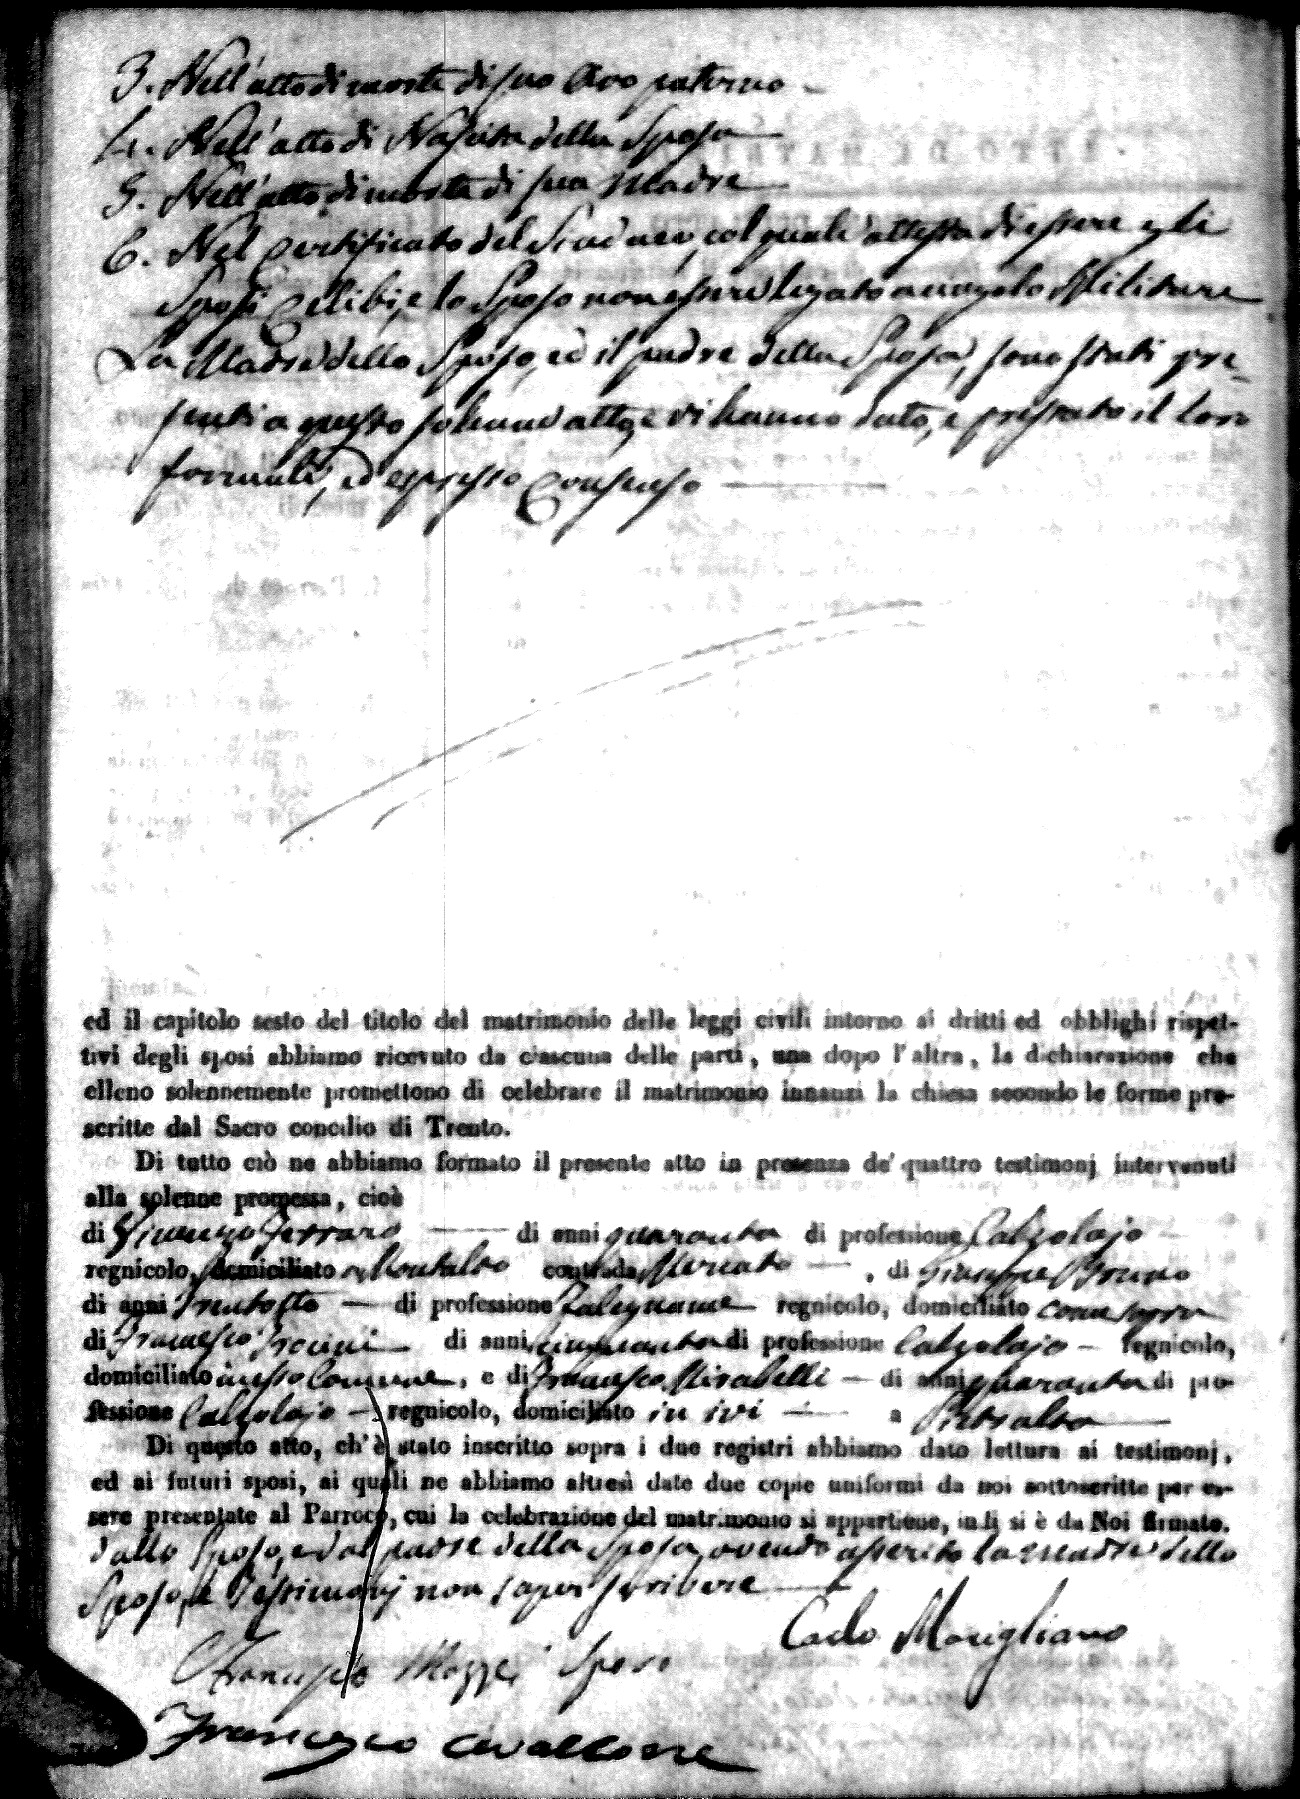 3. Nell'atto di morte di suo Avo paterno
4. Nell'atto di Nascita della Sposa
5. Nell'atto di morte di sua Madre
6. Nel certificato del Sindaco, col quale attesta di essere gli
Sposi celibi, e lo Sposo non essere legato a vincolo Militare
La Madre dello Sposo, ed il padre della Sposa, sono stati pre-
senti a questo solenne atto, e vi hanno dato, e prestato il loro
formale, ed espresso consenso
ed il capitolo sesto del titolo del matrimonio delle leggi civili intorno ai dritti ed obblighi rispet-
tivi degli sposi abbiamo ricevuto da ciascuna delle parti, una dopo l'altra, la dichiarazione che
elleno solennemente promettono di celebrare il matrimonio innanzi la chiesa secondo le forme pre-
scritte dal Sacro concilio di Trento.
Di tutto ciò ne abbiamo formato il presente atto in presenza de' quattro testimonj intervenuti
alla solenne promessa, cioè
di Vincenzo Ferraro di anni quaranta di professione Calzolajo
regnicolo, domiciliato Montalto contrada Mercato, di Giuseppe Bruno
di anni trentotto di professione Falegname regnicolo, domiciliato come sopra
di Francesco di anni cinquanta di professione Calzolajo regnicolo,
domiciliato in esso Comune, e di Francesco Mirabelli di anni quaranta di pro-
fessione Calzolajo regnicolo, domiciliato in ivi a
Di questo atto, ch'è stato inscritto sopra i due registri abbiamo dato lettura ai testimonj,
ed ai futuri sposi, ai quali ne abbiamo altresì date due copie uniformi da noi sottoscritte per es-
sere presentate al Parroco, cui la celebrazione del matrimonio si appartiene, indi si è da Noi firmato.
dallo Sposo, e dal padre della Sposa, avendo asserito la madre dello
Sposo, e Testimonj non saper scrivere
Carlo Marigliano
Francesco Mazzei Sposo
Francesco Cavallone